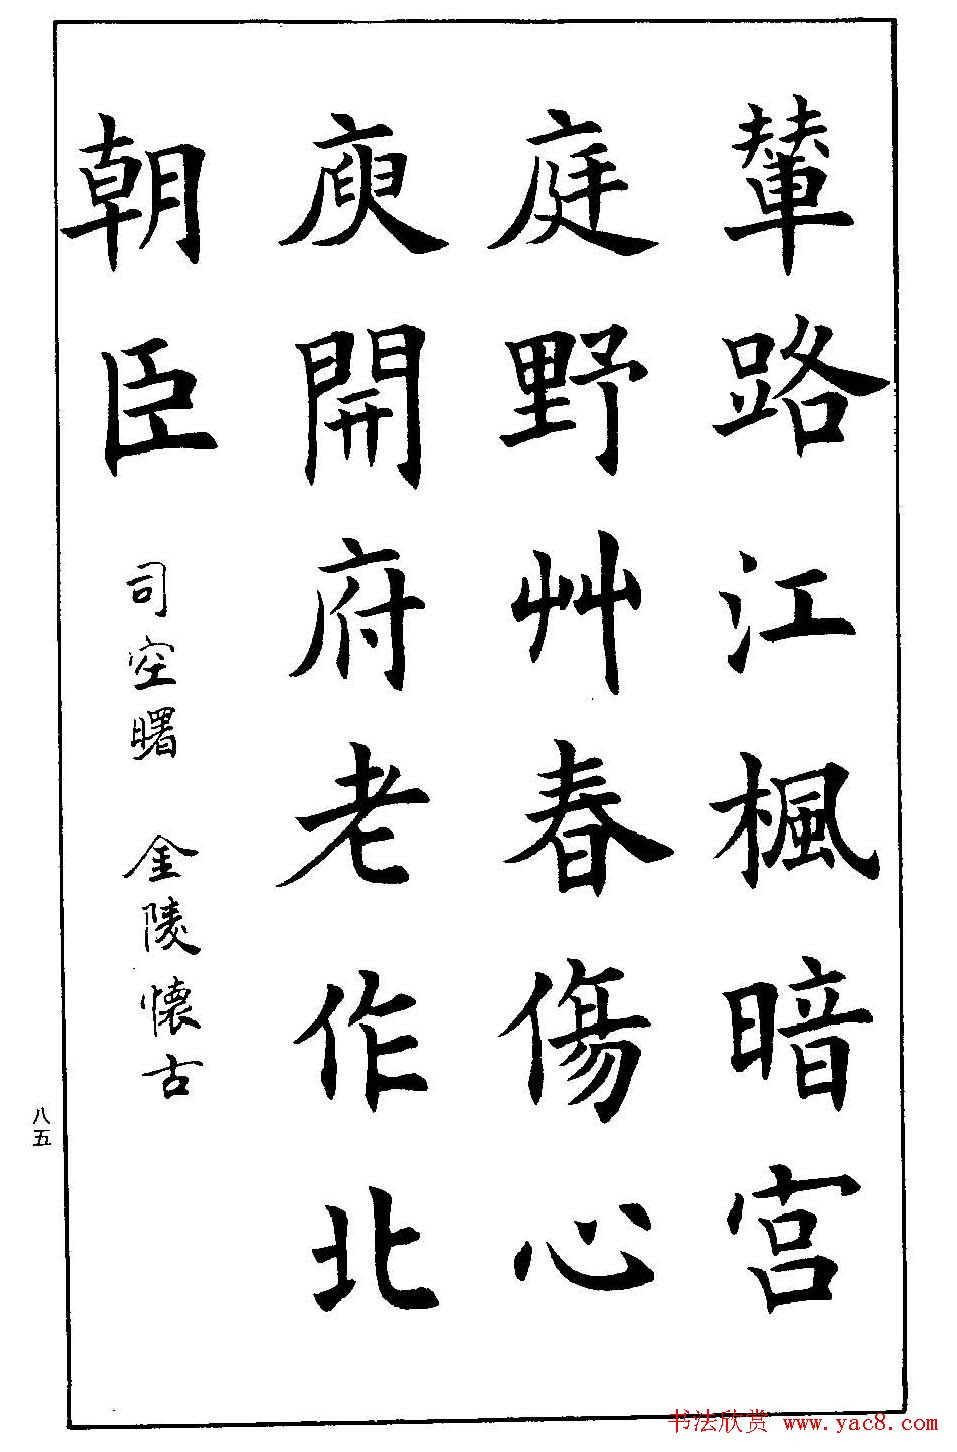 輦路江楓暗宮
庭野艸春傷心
庾開府老作北
朝臣
司空曙 金陵懷古
八五
书法欣赏 www.yac8.com